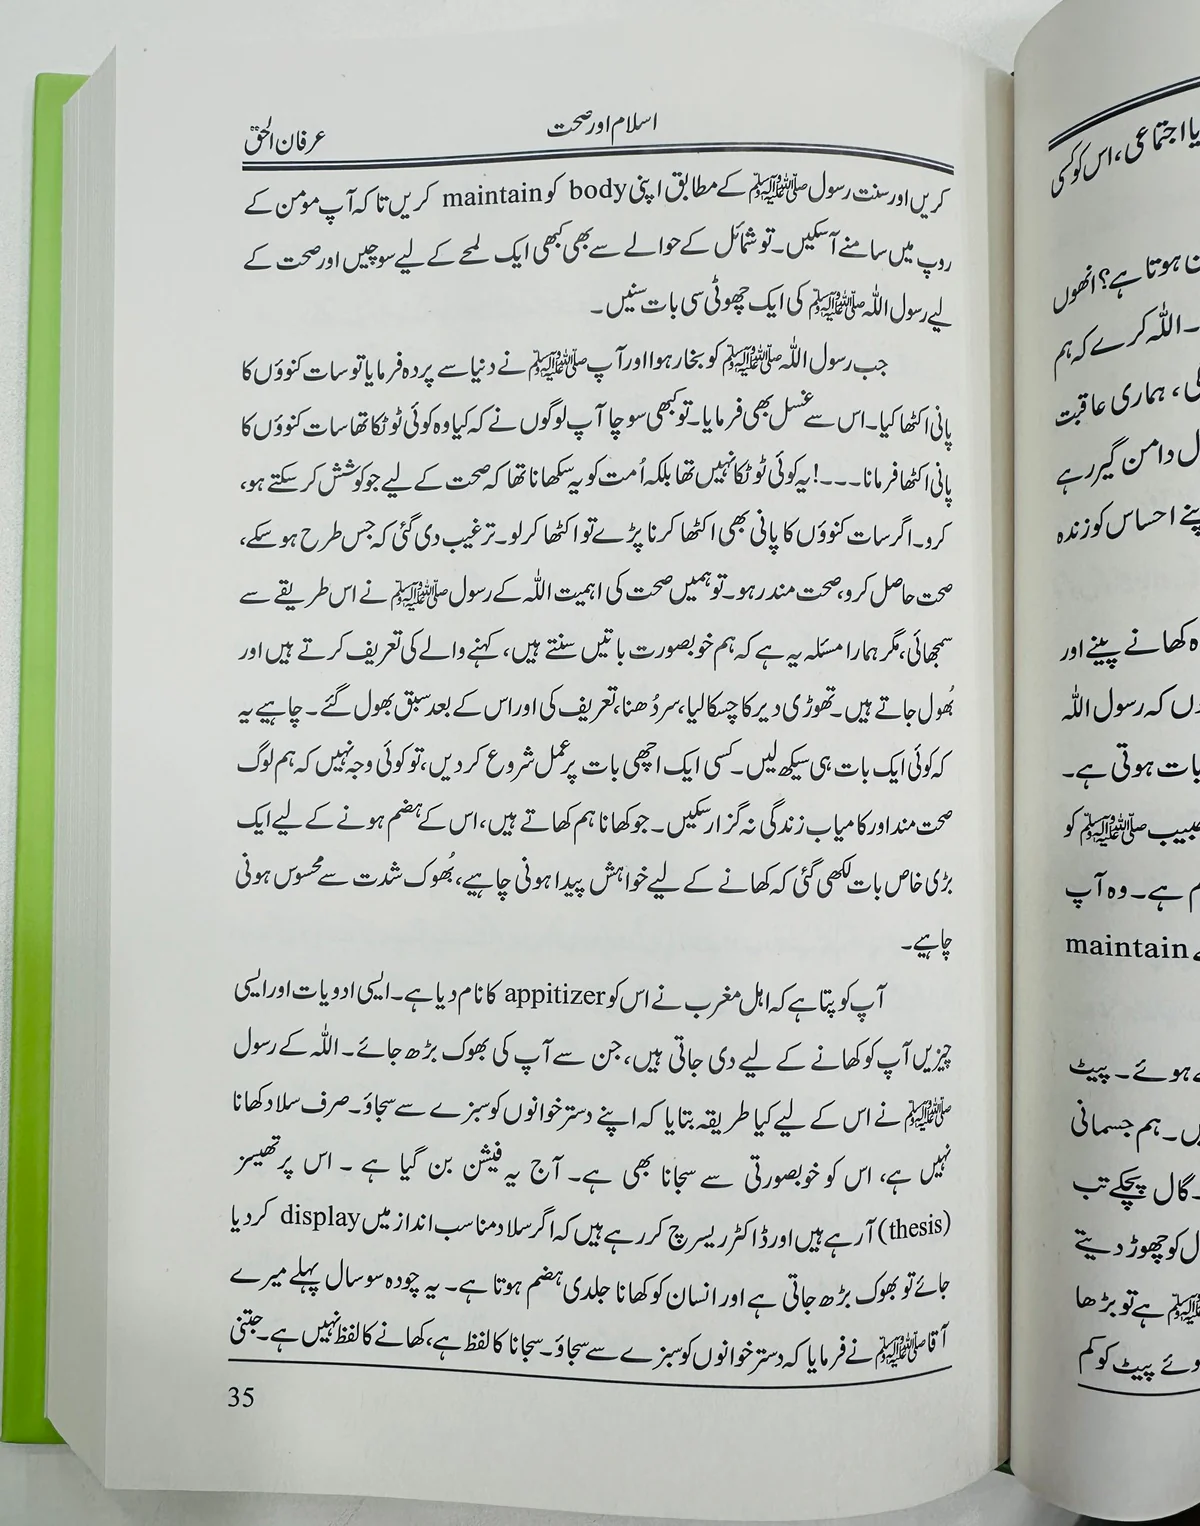 اسلام اور صحت
عرفان الحق
کریں اور سنت رسول ﷺ کے مطابق اپنی body کو maintain کریں تاکہ آپ مومن کے
روپ میں سامنے آسکیں۔ تو شمائل کے حوالے سے بھی کبھی ایک لمحے کے لیے سوچیں اور صحت کے
لیے رسول اللہ ﷺ کی ایک چھوٹی سی بات سنیں۔
جب رسول اللہ ﷺ کو بخار ہوا اور آپ ﷺ نے دنیا سے پردہ فرمایا تو سات کنوؤں کا
پانی اکٹھا کیا۔ اس سے غسل بھی فرمایا۔ تو کبھی سوچا آپ لوگوں نے کہ کیا وہ کوئی ٹوٹکا تھا سات کنوؤں کا
پانی اکٹھا فرمانا۔۔۔! یہ کوئی ٹوٹکا نہیں تھا بلکہ اُمت کو یہ سکھانا تھا کہ صحت کے لیے جو کوشش کر سکتے ہو،
کرو۔ اگر سات کنوؤں کا پانی بھی اکٹھا کرنا پڑے تو اکٹھا کرلو۔ ترغیب دی گئی کہ جس طرح ہو سکے،
صحت حاصل کرو، صحت مند رہو۔ تو ہمیں صحت کی اہمیت اللہ کے رسول ﷺ نے اس طریقے سے
سمجھائی، مگر ہمارا مسئلہ یہ ہے کہ ہم خوبصورت باتیں سنتے ہیں، کہنے والے کی تعریف کرتے ہیں اور
بُھول جاتے ہیں۔ تھوڑی دیر کا چسکا لیا، سر دُھنا، تعریف کی اور اس کے بعد سبق بھول گئے۔ چاہیے یہ
کہ کوئی ایک بات ہی سیکھ لیں۔ کسی ایک اچھی بات پر عمل شروع کر دیں، تو کوئی وجہ نہیں کہ ہم لوگ
صحت مند اور کامیاب زندگی نہ گزار سکیں۔ جو کھانا ہم کھاتے ہیں، اس کے ہضم ہونے کے لیے ایک
بڑی خاص بات لکھی گئی کہ کھانے کے لیے خواہش پیدا ہونی چاہیے، بُھوک شدت سے محسوس ہونی
چاہیے۔
آپ کو پتا ہے کہ اہل مغرب نے اس کو appitizer کا نام دیا ہے۔ ایسی ادویات اور ایسی
چیزیں آپ کو کھانے کے لیے دی جاتی ہیں، جن سے آپ کی بھوک بڑھ جائے۔ اللہ کے رسول
ﷺ نے اس کے لیے کیا طریقہ بتایا کہ اپنے دستر خوانوں کو سبزے سے سجاؤ۔ صرف سلاد کھانا
نہیں ہے، اس کو خوبصورتی سے سجانا بھی ہے۔ آج یہ فیشن بن گیا ہے ۔ اس پر تھیسز
(thesis) آرہے ہیں اور ڈاکٹر ریسرچ کر رہے ہیں کہ اگر سلاد مناسب انداز میں display کر دیا
جائے تو بھوک بڑھ جاتی ہے اور انسان کو کھانا جلدی ہضم ہوتا ہے۔ یہ چودہ سو سال پہلے میرے
آقا ﷺ نے فرمایا کہ دستر خوانوں کو سبزے سے سجاؤ۔ سجانا کا لفظ ہے، کھانے کا لفظ نہیں ہے۔ جتنی
35
یا اجتماعی، اس کو کسی
ہوتا ہے؟ انھوں
۔ اللہ کرے کہ ہم
، ہماری عاقبت
دامن گیر رہے
احساس کو زندہ
کھانے پینے اور
کہ رسول اللہ
بات ہوتی ہے۔
ﷺ کو
ہے۔ وہ آپ
maintain
ہوئے۔ پیٹ
۔ ہم جسمانی
گال پچکے تب
کو چھوڑ دیتے
ﷺ ہے تو بڑھا
پیٹ کو کم